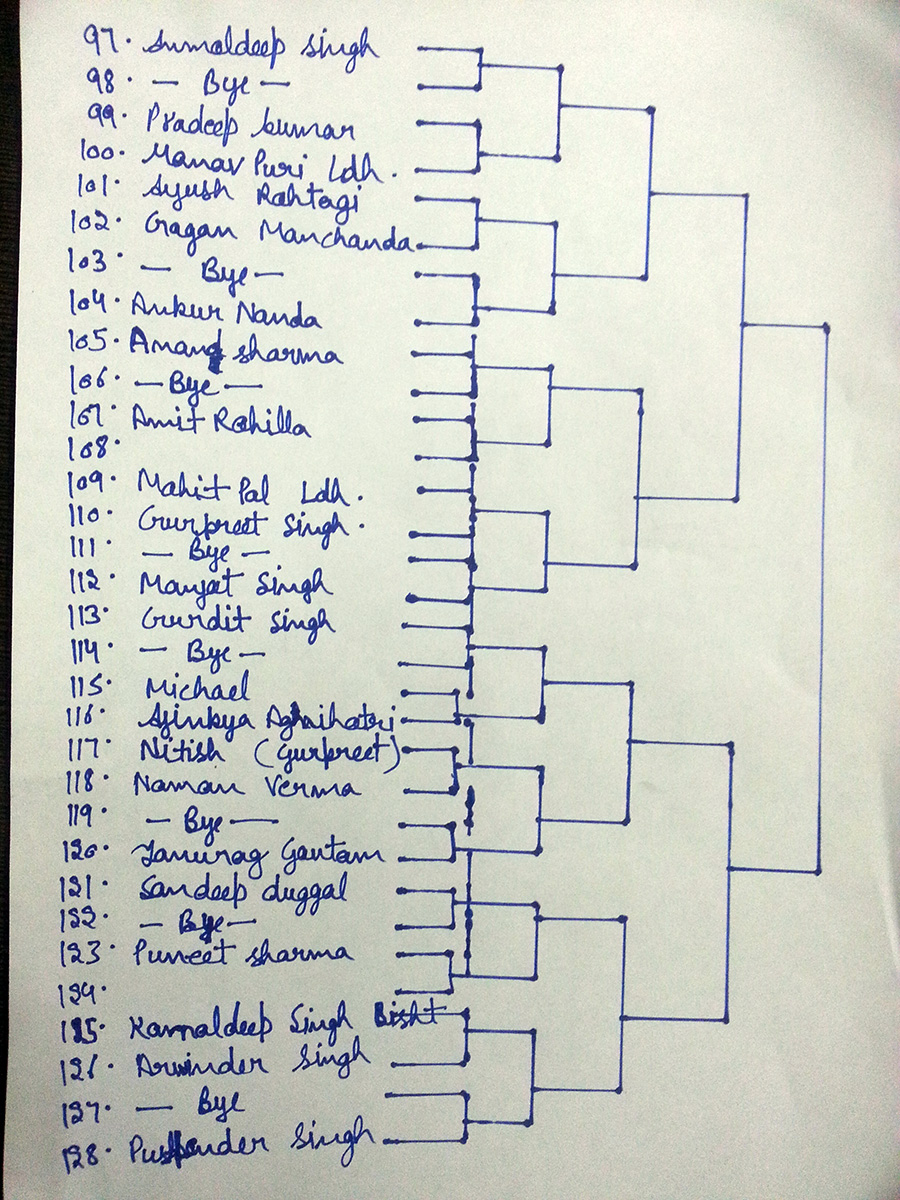 97. Anmoldeep Singh
98. — Bye —
99. Pradeep kumar
100. Manav Puri Ldh.
101. Ayush Rahtogi
102. Gagan Manchanda
103. — Bye —
104. Ankur Nanda
105. Anand sharma
106. — Bye —
107. Amit Rohilla
108.
109. Mohit Pal Ldh.
110. Gurpreet Singh.
111. — Bye —
112. Manjat Singh
113. Gurdit Singh
114. — Bye —
115. Michael
116. Ajinkya Agnihotri
117. Nitish (Gurpreet)
118. Naman Verma
119. — Bye —
120. Gautam
121. Sandeep duggal
122. — Bye —
123. Puneet sharma
124.
125. Kamaldeep Singh Bisht
126. Arwinder Singh
127. — Bye
128. Singh